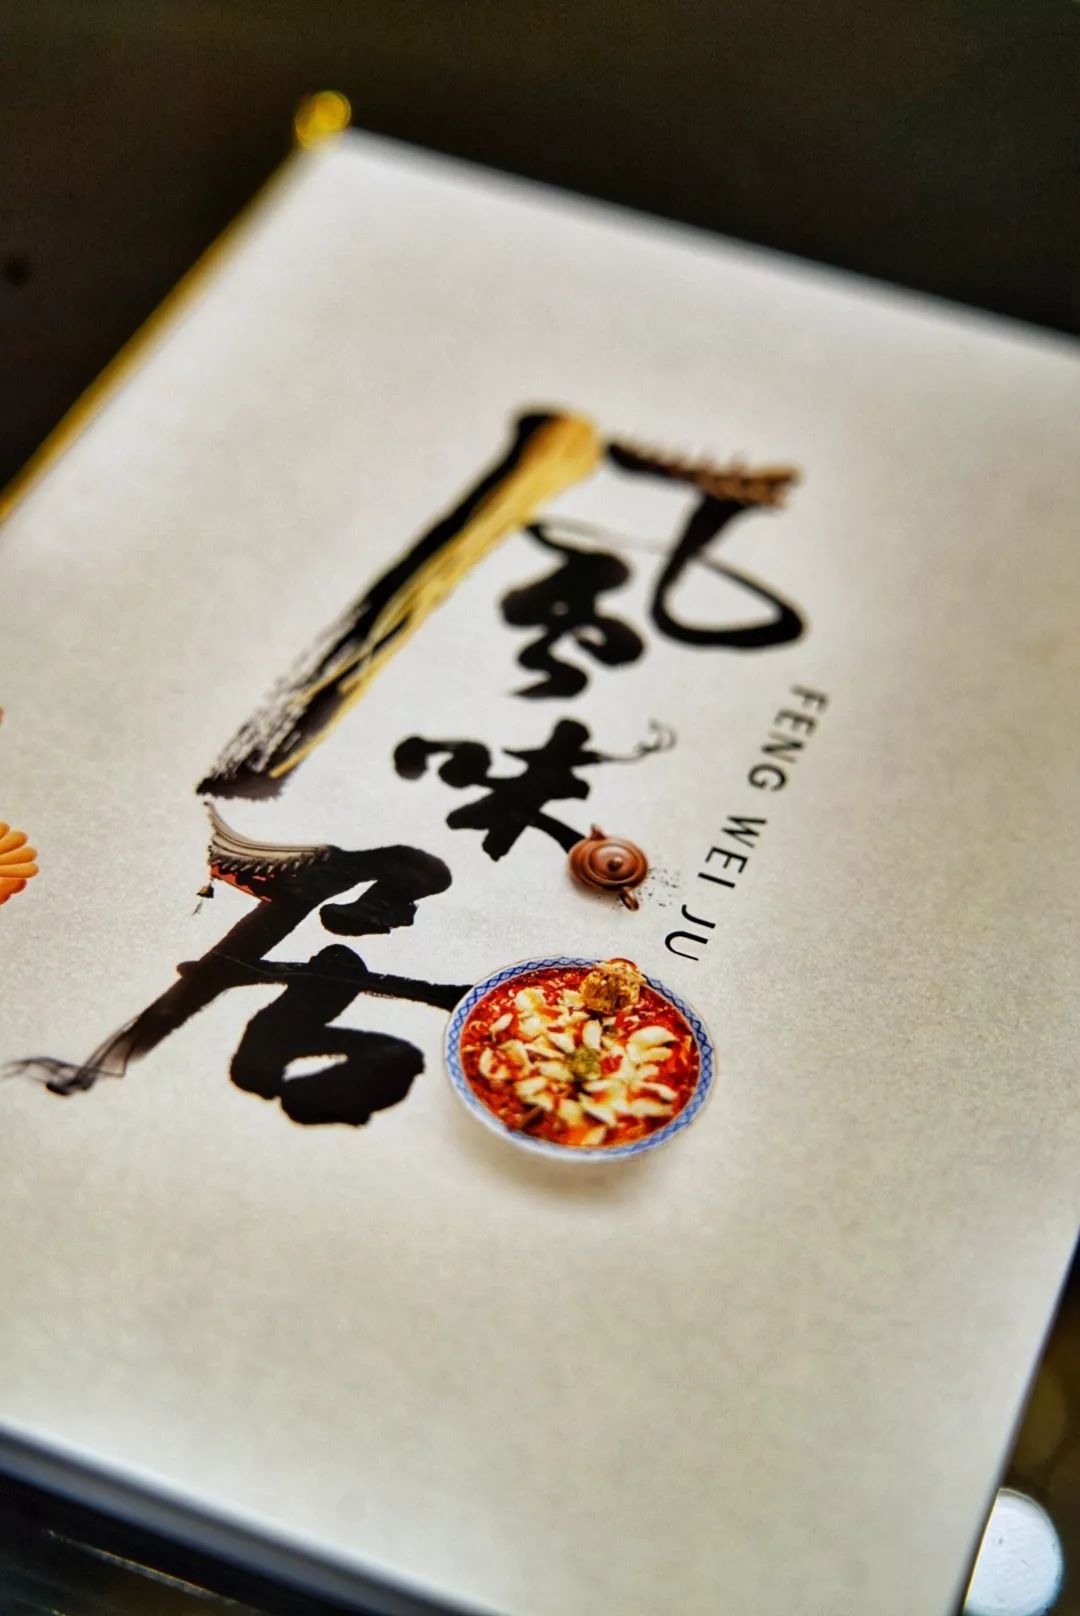 风味居
FENG WEI JU